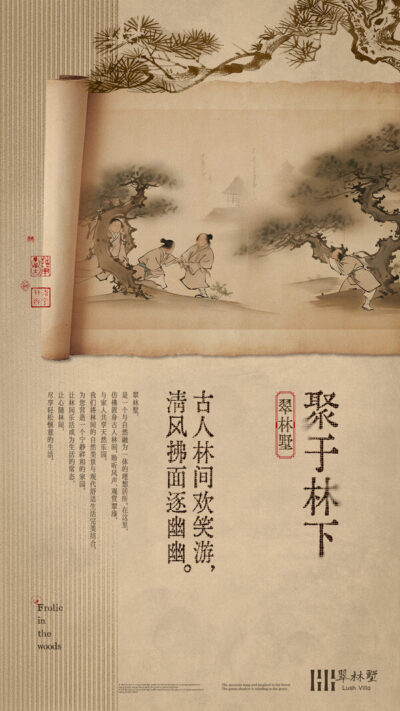 聚于林下
翠林墅
古人林间欢笑游，
清风拂面逐幽幽。
翠林墅，
是一个与自然融为一体的理想居所，在这里，
仿佛置身古人林间，聆听风声，观赏翠绿，
与家人共享天然乐园。
我们将林间的自然美景与现代舒适生活完美结合，
为您营造一个宁静祥和的家园。
让林间乐活成为生活的常态，
让心随林间，
尽享轻松惬意的生活。
Frolic
in
the
woods
翠林墅
Lush Villa